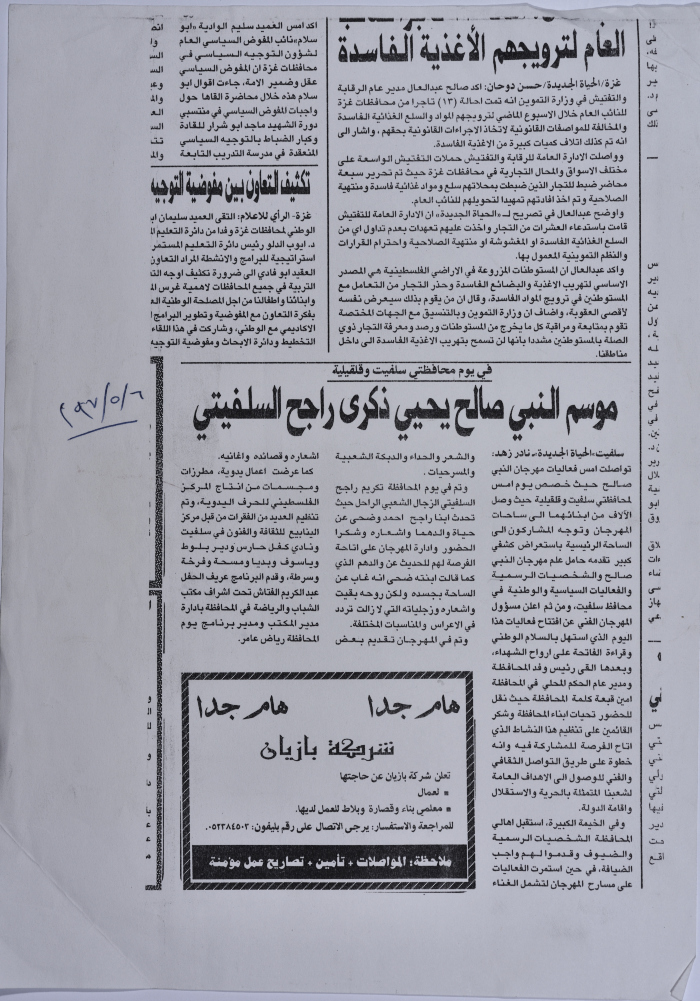 العام لترويجهم الأغذية الفاسدة
غزة/الحياة الجديدة/حسن دوحان: أكد صالح عبدالعال مدير عام الرقابة
والتفتيش في وزارة التموين انه تمت احالة (١٣) تاجرا من محافظات غزة
للنائب العام خلال الاسبوع الماضي لترويجهم المواد والسلع الغذائية الفاسدة
والمخالفة للمواصفات القانونية لاتخاذ الاجراءات القانونية بحقهم، واشار الى
انه تم كذلك اتلاف كميات كبيرة من الاغذية الفاسدة.
وواصلت الادارة العامة للرقابة والتفتيش حملات التفتيش الواسعة على
مختلف الاسواق والمحال التجارية في محافظات غزة حيث تم تحرير سبعة
محاضر ضبط للتجار الذين ضبطت بمحلاتهم سلع ومواد غذائية فاسدة ومنتهية
الصلاحية وتم اخذ افادتهم تمهيدا لتحويلهم للنائب العام.
واوضح عبدالعال في تصريح لـ«الحياة الجديدة» ان الادارة العامة للتفتيش
قامت باستدعاء العشرات من التجار واخذت عليهم تعهدات بعدم تداول اي من
السلع الغذائية الفاسدة او المغشوشة او منتهية الصلاحية واحترام القرارات
والنظم التموينية المعمول بها.
واكد عبدالعال ان المستوطنات المزروعة في الاراضي الفلسطينية هي المصدر
الاساسي لتهريب الاغذية والبضائع الفاسدة وحذر التجار من التعامل مع
المستوطنين في ترويج المواد الفاسدة، وقال ان من يقوم بذلك سيعرض نفسه
لأقصى العقوبة، واضاف ان وزارة التموين وبالتنسيق مع الجهات المختصة
تقوم بمتابعة ومراقبة كل ما يخرج من المستوطنات ورصد ومعرفة التجار ذوي
الصلة بالمستوطنين مشددا بانها لن تسمح بتهريب الاغذية الفاسدة الى داخل
مناطقنا.
اكد امس العميد سليم الوادية «ابو
سلام» نائب المفوض السياسي العام
لشؤون التوجيه السياسي في
محافظات غزة ان المفوض السياسي
عقل وضمير الامة، جاءت اقوال ابو
سلام هذه خلال محاضرة القاها حول
واجبات المفوض السياسي في منتسبي
دورة الشهيد ماجد ابو شرار للقادة
وكبار الضباط بالتوجيه السياسي
المنعقدة في مدرسة التدريب التابعة
تكثيف التعاون بين مفوضية التوجيه
غزة- الرأي للاعلام: التقى العميد سليمان ابـ
الوطني لمحافظات غزة وفدا من دائرة التعليم الـ
د. ايوب الدلو رئيس دائرة التعليم المستمر
استراتيجية للبرامج والانشطة المراد التعاون
العقيد ابو فادي الى ضرورة تكثيف اوجه التـ
التربية في جميع المحافظات لاهمية غرس الـ
وابنائنا واطفالنا من اجل المصلحة الوطنية الـ
بفكرة التعاون مع المفوضية وتطوير البرامج ا
الاكاديمي مع الوطني، وشاركت في هذا اللقاء
التخطيط ودائرة الابحاث ومفوضية التوجيه
٩٧/٥/٦
في يوم محافظتي سلفيت وقلقيلية
موسم النبي صالح يحيي ذكرى راجح السلفيتي
سلفيت-الحياة الجديدة- نادر زهد:
تواصلت امس فعاليات مهرجان النبي
صالح حيث خصص يوم امس
لمحافظتي سلفيت وقلقيلية حيث وصل
الآلاف من ابنائهما الى ساحات
المهرجان وتوجه المشاركون الى
الساحة الرئيسية باستعراض كشفي
كبير تقدمه حامل علم مهرجان النبي
صالح والشخصيات الرسمية
والفعاليات السياسية والوطنية في
محافظ سلفيت، ومن ثم اعلن مسؤول
المهرجان الفني عن افتتاح فعاليات هذا
اليوم الذي استهل بالسلام الوطني
وقراءة الفاتحة على ارواح الشهداء،
وبعدها القى رئيس وفد المحافظة
ومدير عام الحكم المحلي في المحافظة
امين قبعة كلمة المحافظة حيث نقل
للحضور تحيات ابناء المحافظة وشكر
القائمين على تنظيم هذا النشاط الذي
اتاح الفرصة للمشاركة فيه وانه
خطوة على طريق التواصل الثقافي
والفني للوصول الى الاهداف العامة
لشعبنا المتمثلة بالحرية والاستقلال
واقامة الدولة.
وفي الخيمة الكبيرة، استقبل اهالي
المحافظة الشخصيات الرسمية
والضيوف وقدموا لهم واجب
الضيافة، في حين استمرت الفعاليات
على مسارح المهرجان لتشمل الغناء
والشعر والحداء والدبكة الشعبية
والمسرحيات.
وتم في يوم المحافظة تكريم راجح
السلفيتي الزجال الشعبي الراحل حيث
تحدث ابنا راجح احمد وضحى عن
حياة والدهما واشعاره وشكرا
الحضور وادارة المهرجان على اتاحة
الفرصة لهم للحديث عن والدهم الذي
كما قالت ابنته ضحى انه غاب عن
الساحة بجسده ولكن روحه بقيت
واشعاره وزجلياته التي لا زالت تردد
في الاعراس والمناسبات المختلفة.
وتم في المهرجان تقديم بعض
اشعاره وقصائده واغانيه.
كما عرضت اعمال يدوية، مطرزات
ومجسمات من انتاج المركز
الفلسطيني للحرف اليدوية، وتم
تنظيم العديد من الفقرات من قبل مركز
الينابيع للثقافة والفنون في سلفيت
ونادي كفل حارس ودير بلوط
وياسوف وبديا ومسحة وفرخة
وسرطة، وقدم البرنامج عريف الحفل
عبد الكريم الفتاش تحت اشراف مكتب
الشباب والرياضة في المحافظة بادارة
مدير المكتب ومدير برنامج يوم
المحافظة رياض عامر.
هام جدا هام جدا
شركة بازيان
تعلن شركة بازيان عن حاجتها
■ لعمال
■ معلمي بناء وقصارة وبلاط للعمل لديها.
للمراجعة والاستفسار: يرجى الاتصال على رقم بليفون: ٠٥٢٣٨٤٥٠٣.
ملاحظة: المواصلات + تأمين + تصاريح عمل مؤمنة